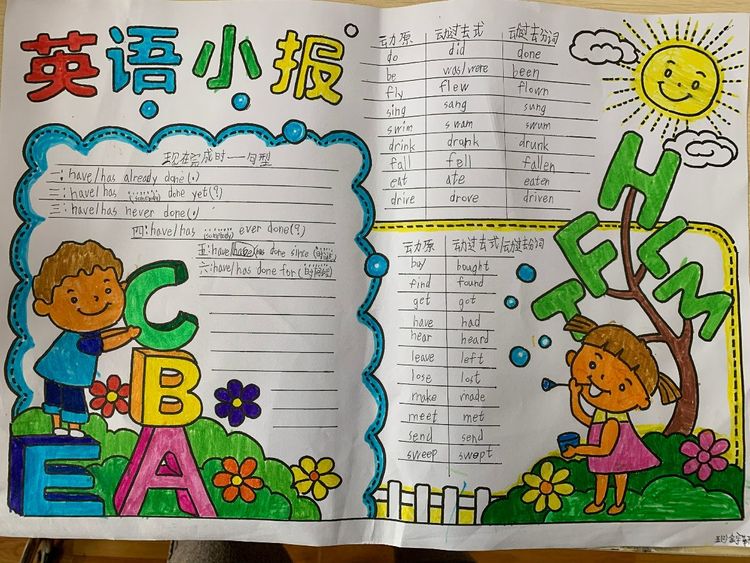 英语小报
现在完成时——句型
一:have/has already done(.)
二:have/has (somebody) done yet(?)
三:have/has never done(.)
四:have/has (somebody) ever done(?)
五:have/has done since
六:have/has done for(时间段)
动力原 动过去式 动过去分词
do did done
be was/were been
fly flew flown
sing sang sung
swim swam swum
drink drank drunk
fall fell fallen
eat ate eaten
drive drove driven
动力原 动过去式/动过去分词
buy bought
find found
get got
have had
hear heard
leave left
lose lost
make made
meet met
send send
sweep swept
H
L
F
M
T
C
B
E A